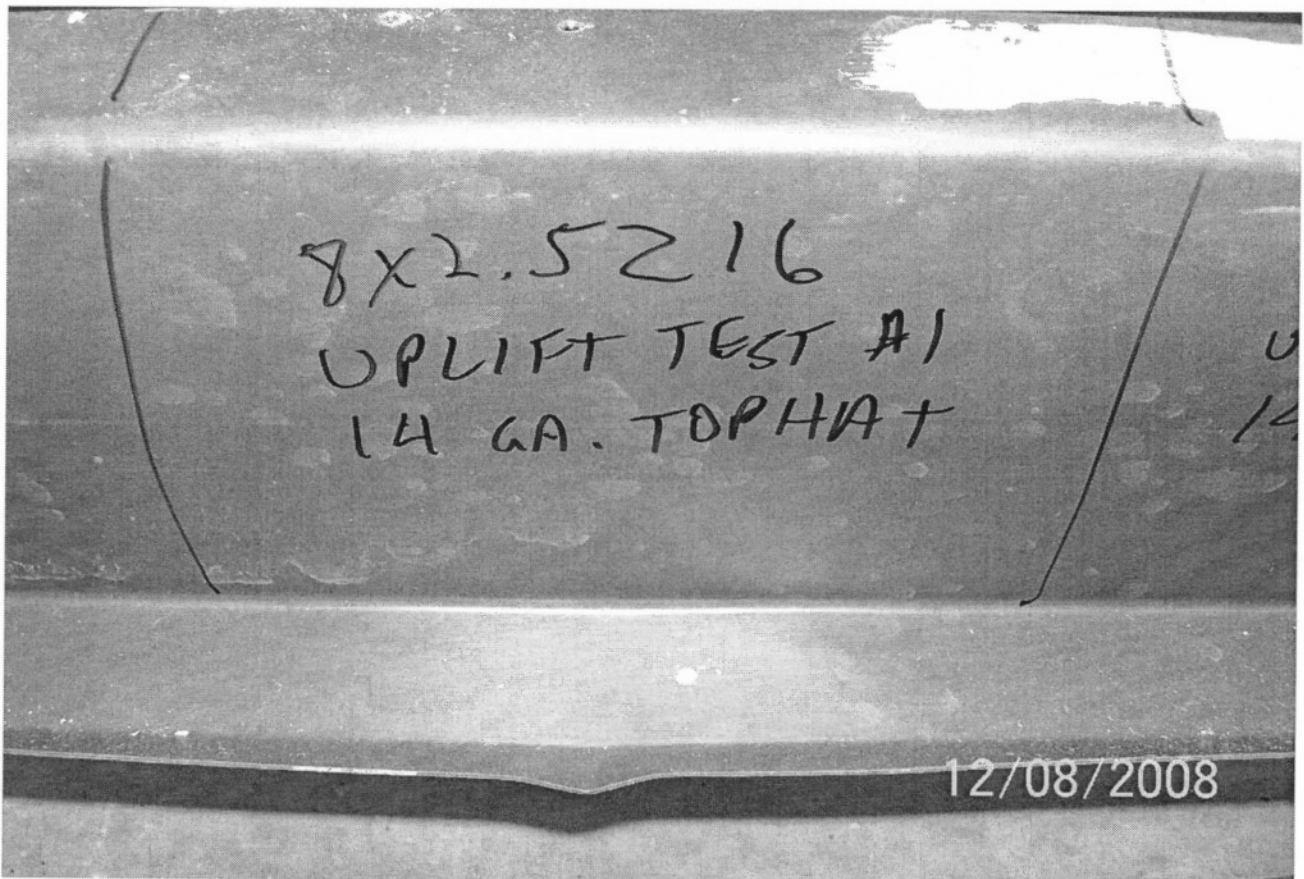 8x2.5Z16
UPLIFT TEST #1
14 GA. TOPHAT
U
14
12/08/2008